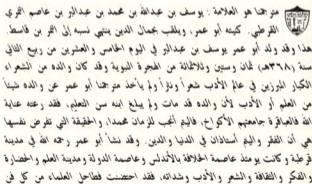 مترجمنا هو العلامة: يوسف بن عبدالله بن محمد بن عبدالبر بن عاصم النمري
القرطبي. كنيته أبو عمر، ويلقب بجمال الدين ينتهي نسبه إلى النمر بن قاسط.
هذا وقد ولد أبو عمر يوسف بن عبدالبر في اليوم الخامس والعشرين من ربيع الثاني
سنة (٣٦٨هـ) ثمان وستين وثلاثمائة من الهجرة النبوية وقد كان والده من الشعراء
الكبار المبرزين في عالم الأدب شعراً ونثراً ولم يأخذ مترجمنا أبو عمر عن والده شيئاً
من العلم أو الأدب لأن والده قد مات ولم يبلغ ابنه سن التعلم، فقد رعته عناية
الله فالعباقرة جامعتهم الأكواخ، فاليتم أنجب للزمان محمداً، والحقيقة التي تفرض نفسها
هي أن الفقر واليتم أستاذان في الدنيا والدين. وقد نشأ أبو عمر رحمه الله في مدينة
قرطبة وكانت يومئذ عاصمة الخلافة بالأندلس وعاصمة الدولة ومدينة العلم والحضارة
والفكر والثقافة والشعر والأدب وشداته، فقد احتضنت فطاحل العلماء من كل فن